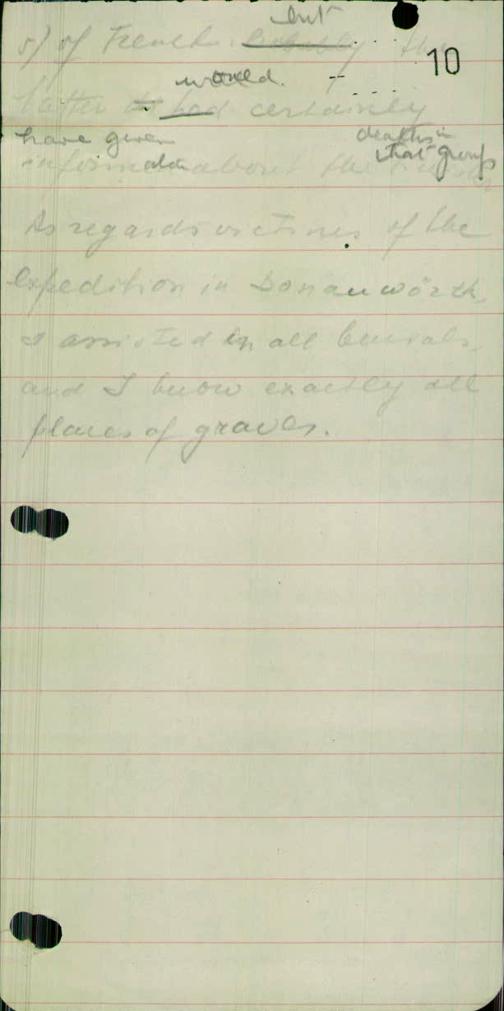 but
5) of French. Probably the
10
would
latter to had certainly
have given deaths in
that group
information about the
As regards victims of the
expedition in Donauwörth,
I assisted in all burials,
and I know exactly all
places of graves.